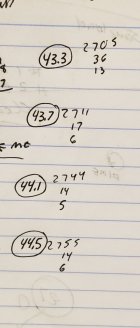 43.3 2705
36
13
43.7 2711
17
6
mc
44.1 2744
14
5
44.5 2755
14
6